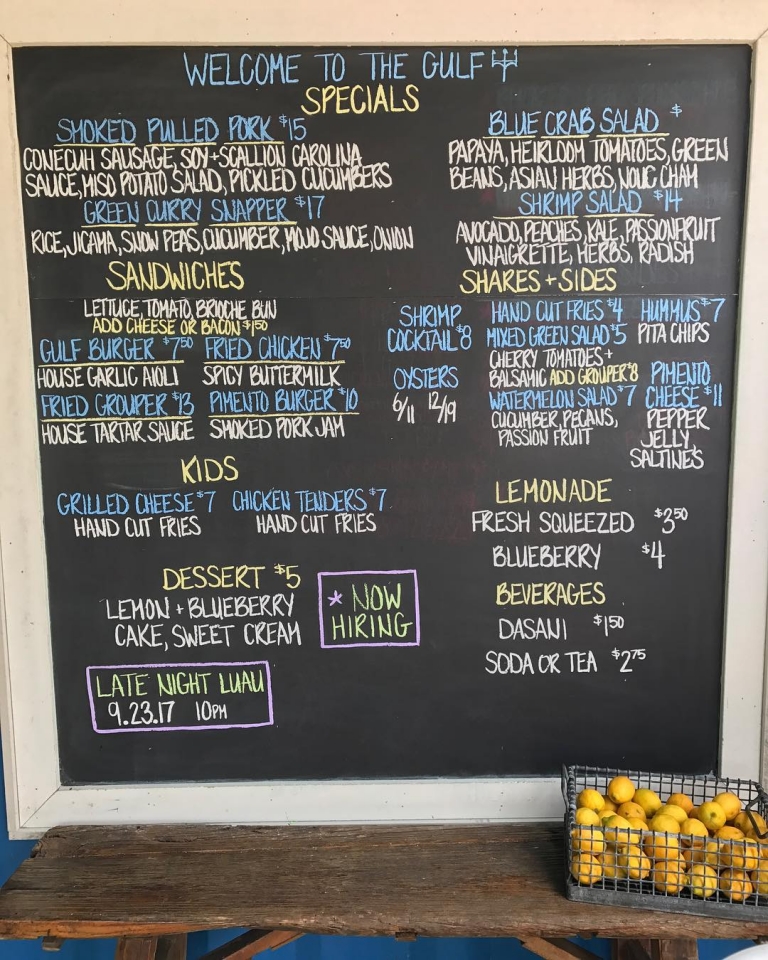 WELCOME TO THE GULF
SPECIALS
SMOKED PULLED PORK $15
CONECUH SAUSAGE, SOY+SCALLION CAROLINA
SAUCE, MISO POTATO SALAD, PICKLED CUCUMBERS
GREEN CURRY SNAPPER $17
RICE, JICAMA, SNOW PEAS, CUCUMBER, MOJO SAUCE, ONION
BLUE CRAB SALAD $
PAPAYA, HEIRLOOM TOMATOES, GREEN
BEANS, ASIAN HERBS, NOUC CHAM
SHRIMP SALAD $14
AVOCADO, PEACHES, KALE, PASSIONFRUIT
VINAIGRETTE, HERBS, RADISH
SANDWICHES
LETTUCE, TOMATO, BRIOCHE BUN
ADD CHEESE OR BACON $1.50
GULF BURGER $7.50
HOUSE GARLIC AIOLI
FRIED CHICKEN $7.50
SPICY BUTTERMILK
FRIED GROUPER $13
HOUSE TARTAR SAUCE
PIMENTO BURGER $10
SMOKED PORK JAM
SHARES + SIDES
SHRIMP
COCKTAIL $8
OYSTERS
6/11 12/19
HAND CUT FRIES $4
MIXED GREEN SALAD $5
CHERRY TOMATOES +
BALSAMIC ADD GROUPER $8
WATERMELON SALAD $7
CUCUMBER, PECANS,
PASSION FRUIT
HUMMUS $7
PITA CHIPS
PIMENTO
CHEESE $11
PEPPER
JELLY
SALTINES
KIDS
GRILLED CHEESE $7
HAND CUT FRIES
CHICKEN TENDERS $7
HAND CUT FRIES
DESSERT $5
LEMON + BLUEBERRY
CAKE, SWEET CREAM
* NOW
HIRING
LATE NIGHT LUAU
9.23.17 10PM
LEMONADE
FRESH SQUEEZED $3.50
BLUEBERRY $4
BEVERAGES
DASANI $1.50
SODA OR TEA $2.75